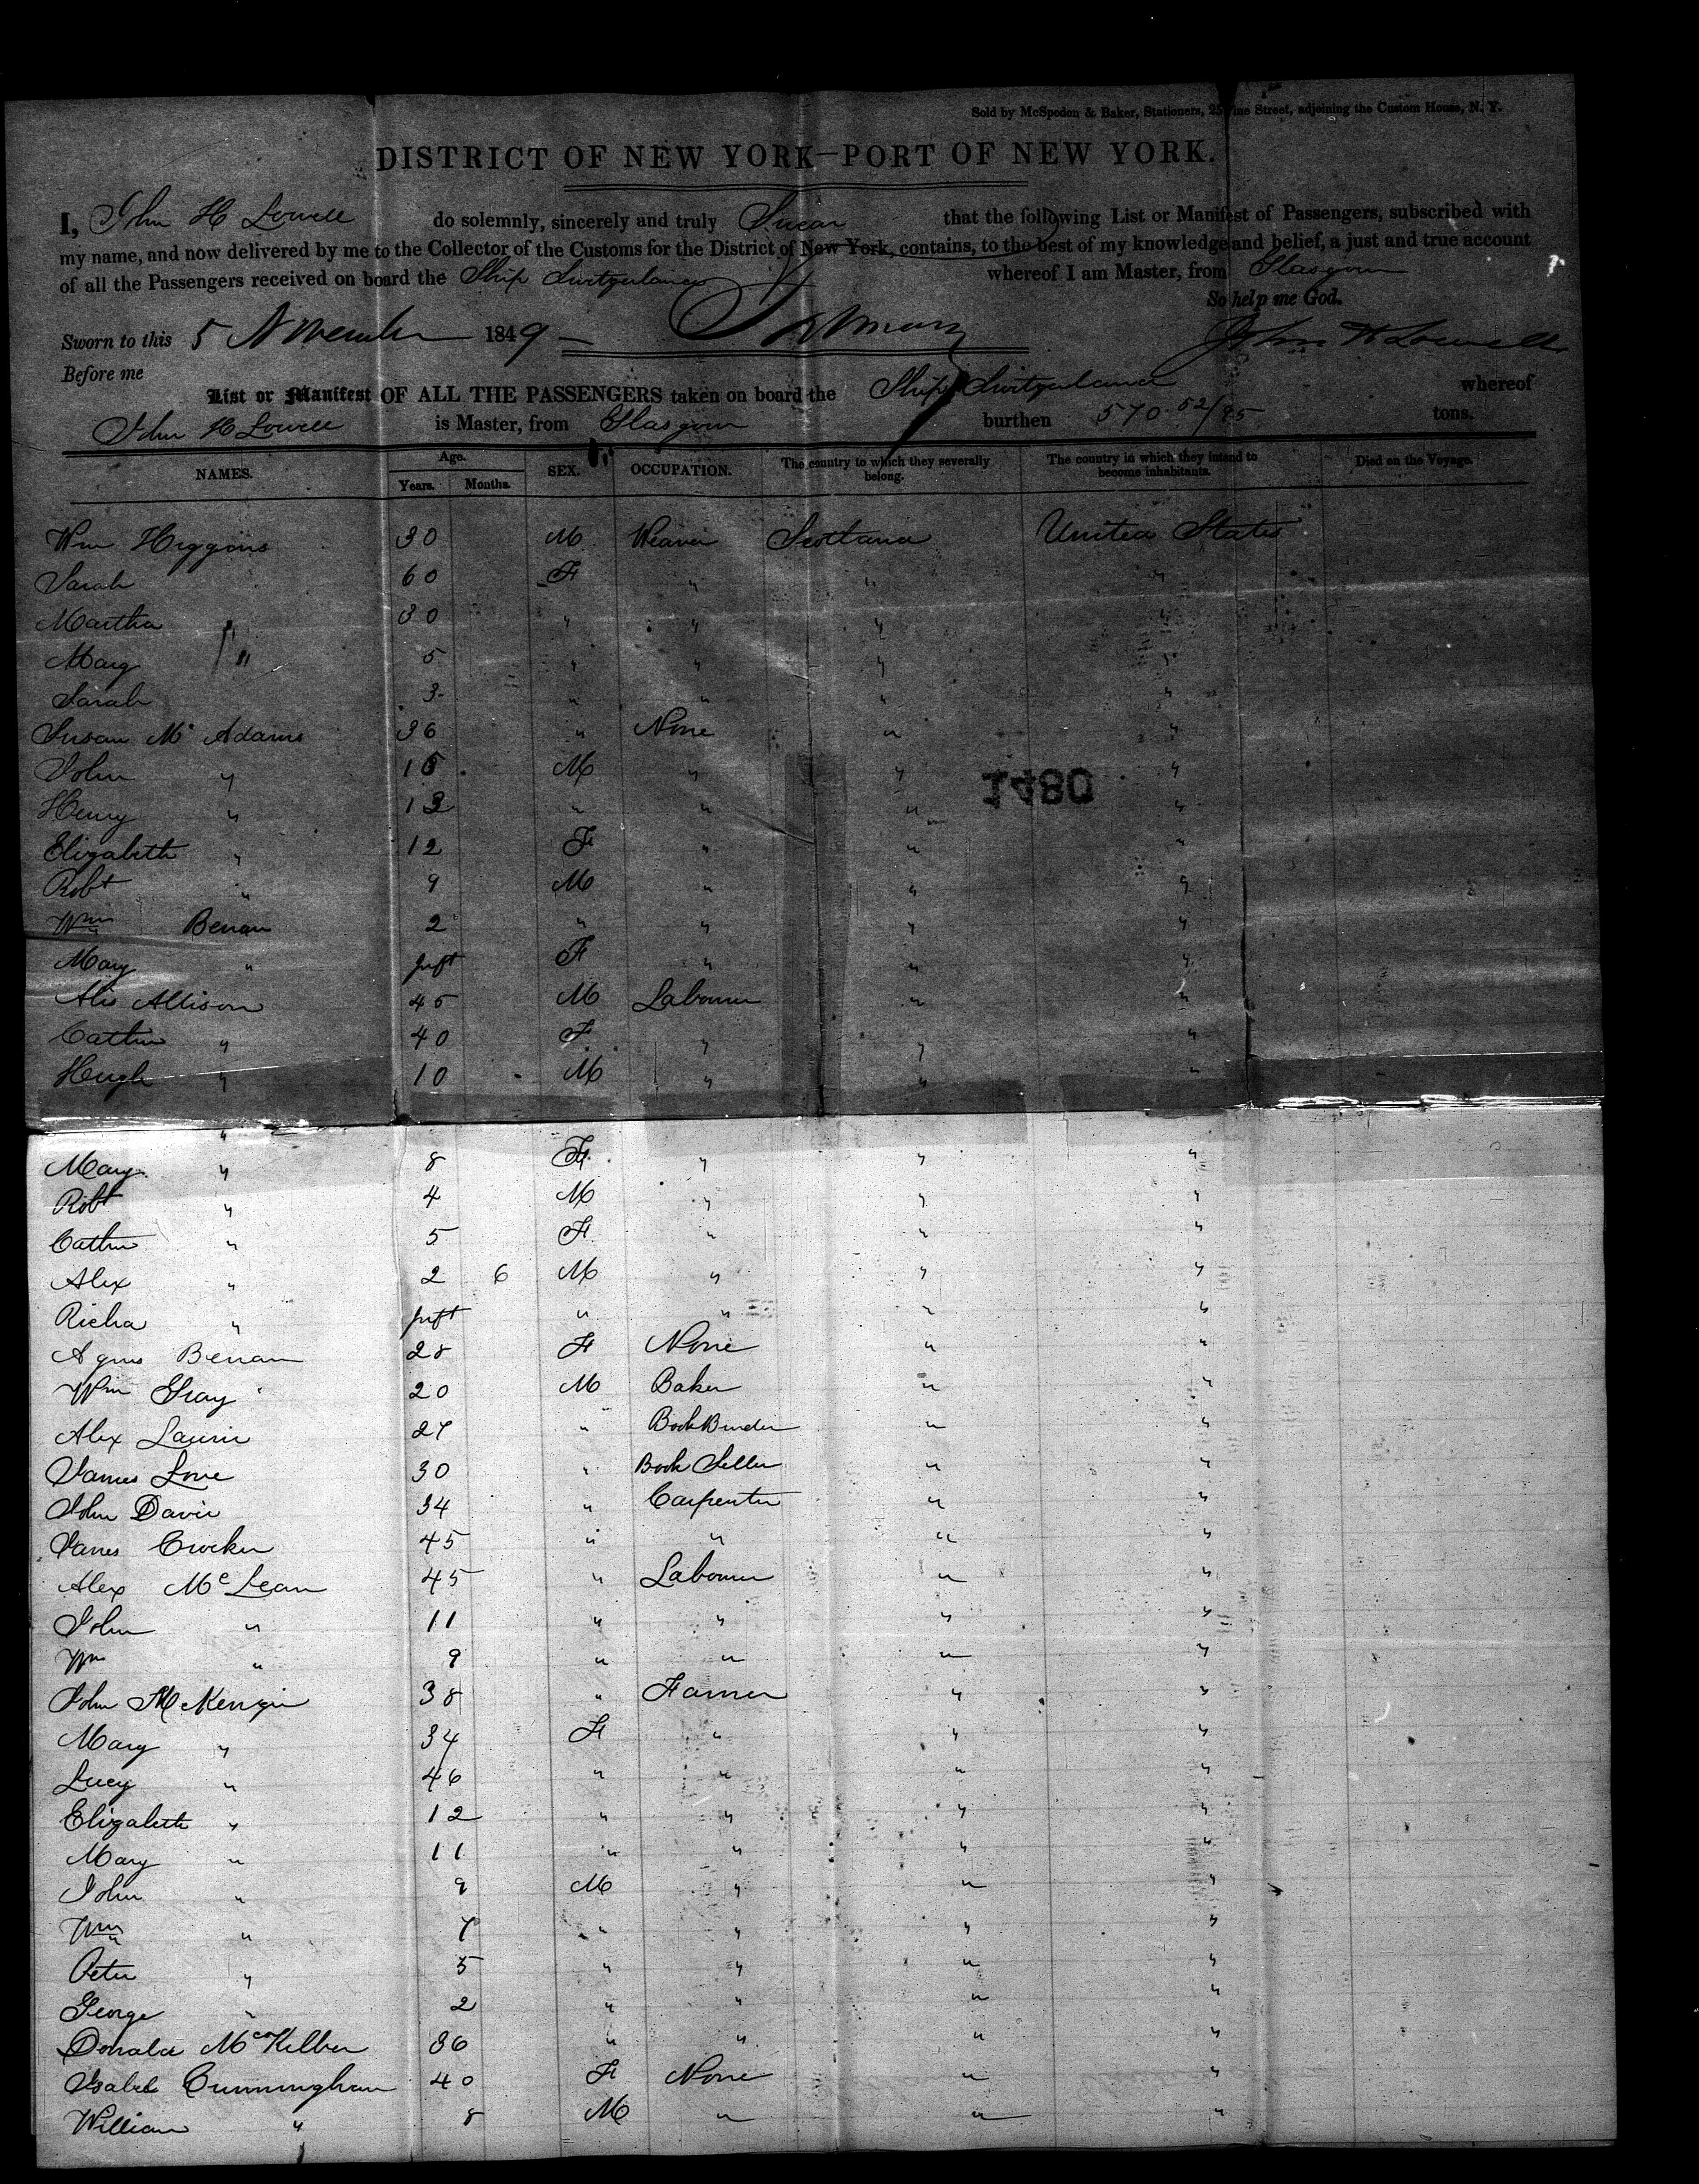 Sold by McSpedon & Baker, Stationers, 25 Pine Street, adjoining the Custom House, N. Y.
DISTRICT OF NEW YORK—PORT OF NEW YORK.
I, John H Lowell do solemnly, sincerely and truly Swear that the following List or Manifest of Passengers, subscribed with
my name, and now delivered by me to the Collector of the Customs for the District of New York, contains, to the best of my knowledge and belief, a just and true account
of all the Passengers received on board the Ship Switzerland whereof I am Master, from Glasgow
So help me God.
Sworn to this 5 November 1849 John H Lowell
Before me
List or Manifest OF ALL THE PASSENGERS taken on board the Ship Switzerland whereof
John H Lowell is Master, from Glasgow burthen 570.52/95 tons.
NAMES. Age. Years. Months. SEX. OCCUPATION. The country to which they severally belong. The country in which they intend to become inhabitants. Died on the Voyage.
Wm Higgins 30 M Weaver Scotland United States
Sarah 60 F " " "
Martha " 30 " " " "
Mary " 5 " " " "
Sarah 3 " " " "
Susan Mc Adams 36 " None " "
John " 15 M " " "
1480
Henry " 13 " " " "
Elizabeth " 12 F " " "
Robt " 9 M " " "
Wm Benan 2 " " " "
Mary " Inft F " " "
Alex Allison 45 M Labourer " "
Cathn " 40 F " " "
Hugh " 10 M " " "
"
Mary " 8 F " " "
Robt " 4 M " " "
Cathn " 5 F " " "
Alex " 2 6 M " " "
Richd " Inft " " " "
Agnes Benan 28 F None " "
Wm Gray 20 M Baker " "
Alex Laurie 27 " Book Binder " "
James Love 30 " Book Seller " "
John Davie 34 " Carpenter " "
James Crocker 45 " " " "
Alex Mc Lean 45 " Labourer " "
John " 11 " " " "
Wm " 9 " " " "
John McKenzie 38 " Farmer " "
Mary " 34 F " " "
Lucy " 46 " " " "
Elizabeth " 12 " " " "
Mary " 11 " " " "
John " 9 M " " "
Wm " 7 " " " "
Peter " 5 " " " "
George " 2 " " " "
Donald 36 " " " "
Isabel Cunningham 40 F None " "
William " 8 M " " "